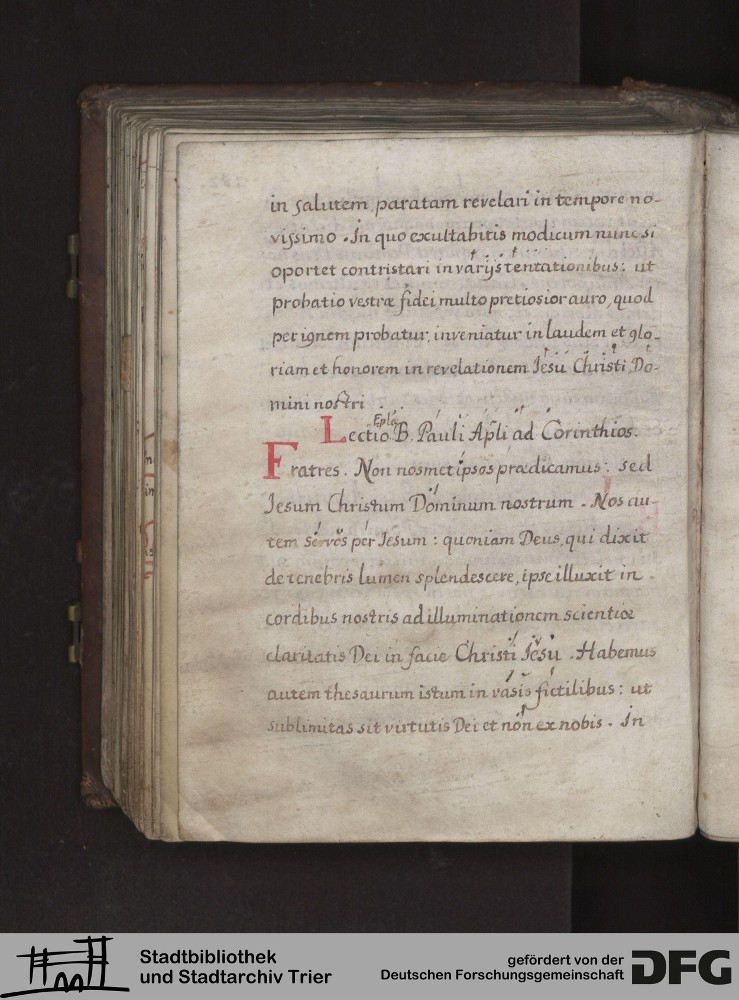 in salutem paratam revelari in tempore no-
vissimo. In quo exultabitis modicum nunc si
oportet contristari in varijs tentationibus: ut
probatio vestræ fidei multo pretiosior auro, quod
per ignem probatur, inveniatur in laudem et glo-
riam et honorem in revelatione Jesu Christi Do-
mini nostri
Lectio Eplæ B. Pauli Apli ad Corinthios.
Fratres. Non nosmet ipsos prædicamus: sed
Jesum Christum Dominum nostrum. Nos au-
tem servos per Jesum: quoniam Deus, qui dixit
de tenebris lumen splendescere, ipse illuxit in
cordibus nostris ad illuminationem scientiæ
claritatis Dei in facie Christi Jesu. Habemus
autem thesaurum istum in vasis fictilibus: ut
sublimitas sit virtutis Dei et non ex nobis. In
Stadtbibliothek
und Stadtarchiv Trier
gefördert von der
Deutschen Forschungsgemeinschaft
DFG